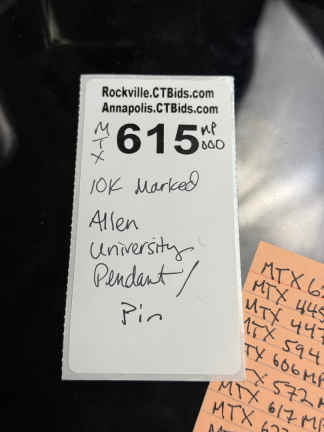 Rockville.CTBids.com
Annapolis.CTBids.com
MTX 615 MP 000
10K Marked
Allen
University
Pendant/
Pin
MTX 6
MTX 445
MTX 447
MTX 594
MTX 606 MP
MTX 572
MTX 617 MP
MTX